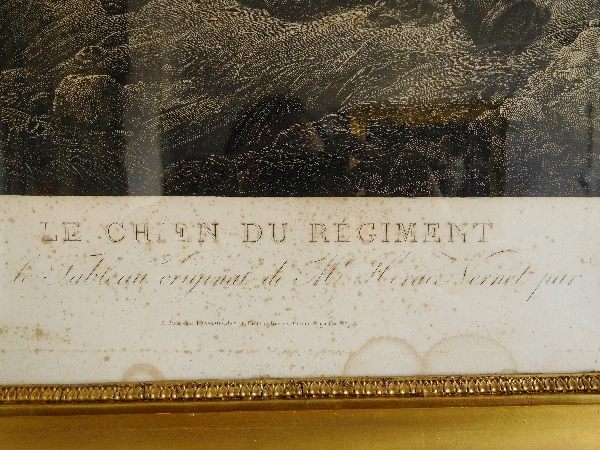 LE CHIEN DU RÉGIMENT
le Tableau original de Mr. Horace Vernet par
A Paris chez